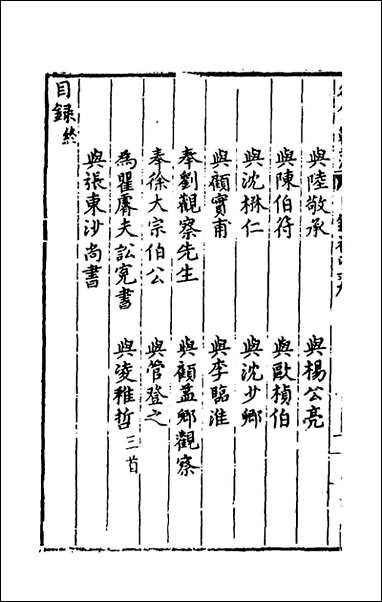 與陸敬承　與楊公亮
與陳伯符　與歐楨伯
與沈楙仁　與沈少卿
與顧實甫　與李臨淮
奉劉觀察先生　與顧孟鄉觀察
奉徐大宗伯公　與管登之
為瞿𪪺夫訟寃書　與凌稚哲三首
與張東沙尚書
目録終